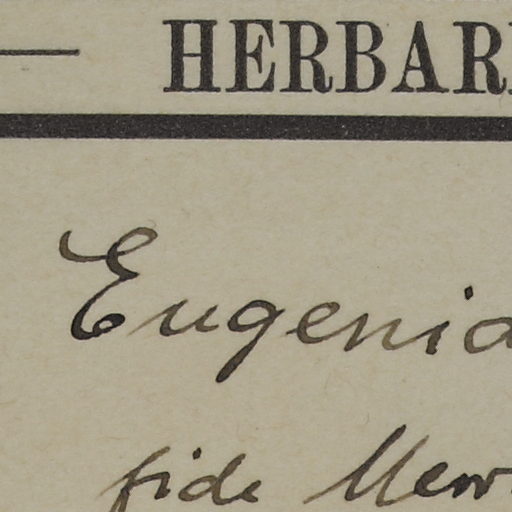 HERBAR
Eugenia
fide